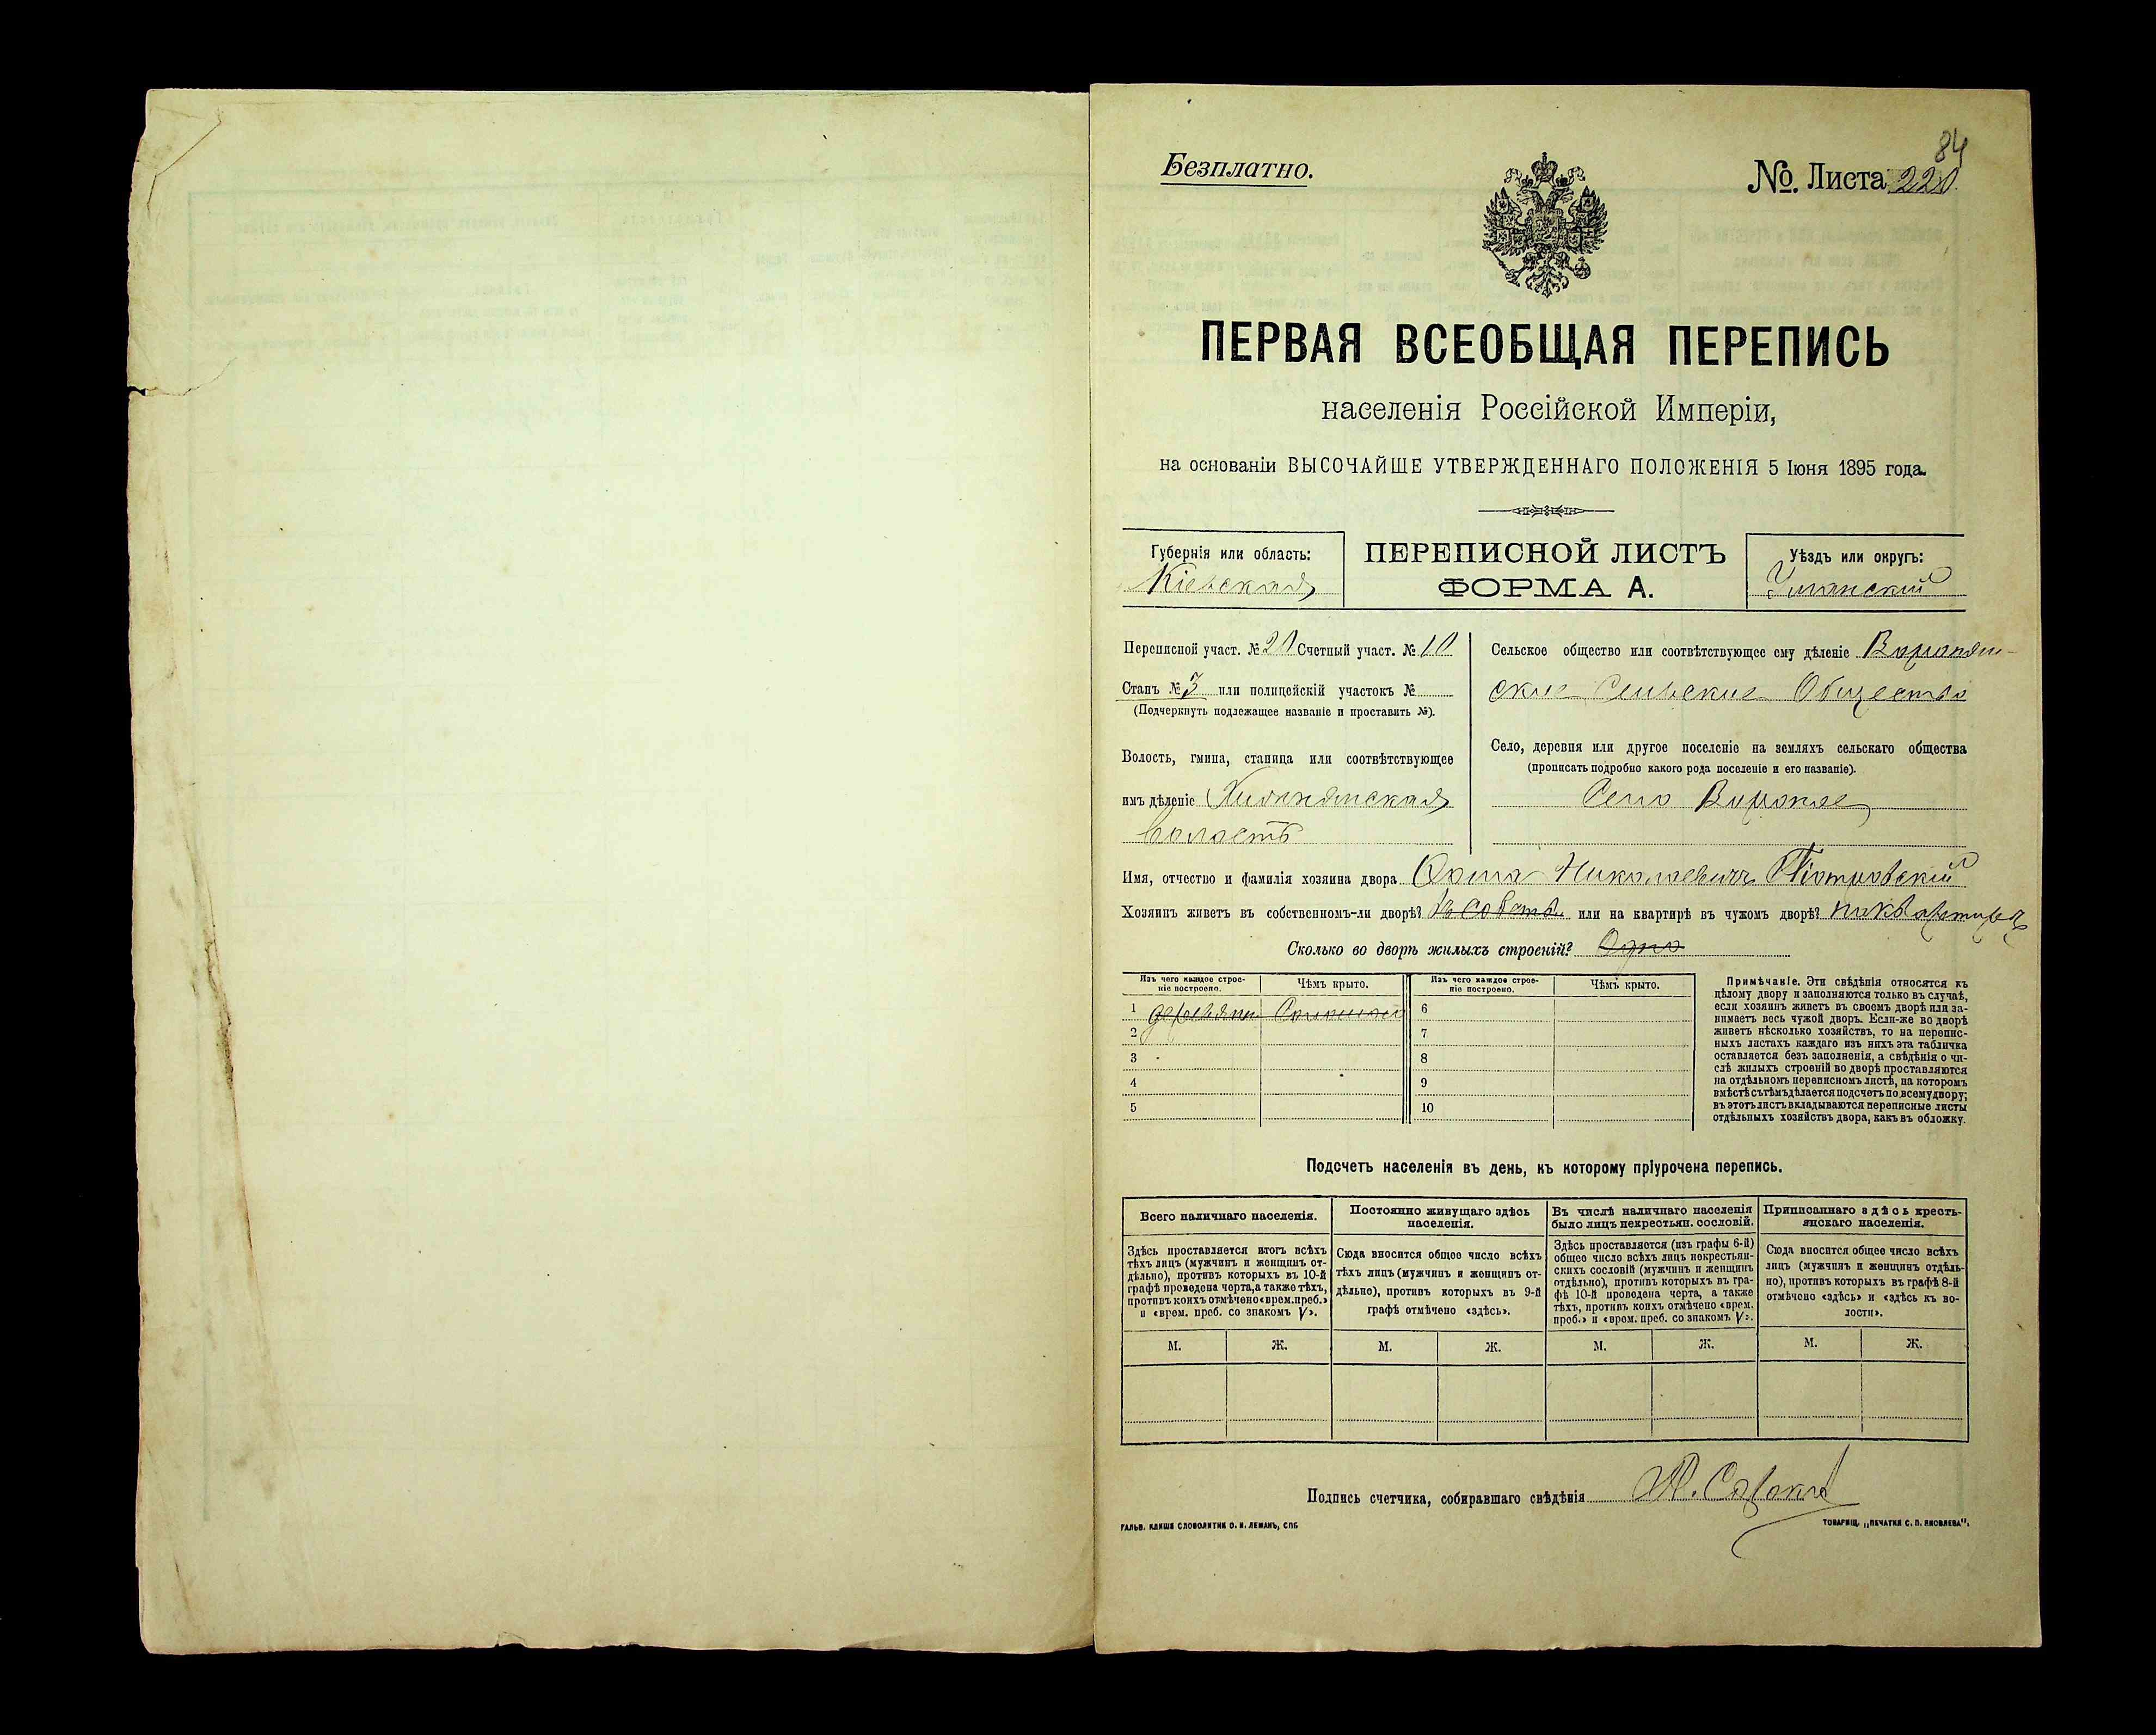 84
Безплатно.
№. Листа 220
ПЕРВАЯ ВСЕОБЩАЯ ПЕРЕПИСЬ
населенія Россійской Имперіи,
на основаніи ВЫСОЧАЙШЕ УТВЕРЖДЕННАГО ПОЛОЖЕНІЯ 5 Іюня 1895 года.
Губернія или область:
Кіевская
ПЕРЕПИСНОЙ ЛИСТЪ
ФОРМА А.
Уѣздъ или округъ:
Уманский
Переписной участ. № 20 Счетный участ. № 10
Станъ № 3 или полицейскій участокъ №
(Подчеркнуть подлежащее названіе и проставить №).
Волость, гмина, станица или соотвѣтствующее
имъ дѣленіе
волость
Сельское общество или соотвѣтствующее ему дѣленіе
ское Сельские Общество
Село, деревня или другое поселеніе на земляхъ сельскаго общества
(прописать подробно какого рода поселеніе и его названіе).
Село Вороное
Имя, отчество и фамилія хозяина двора Фома Николаевичъ Піотровскій
Хозяинъ живетъ въ собственномъ-ли дворѣ? въ собств. или на квартирѣ въ чужомъ дворѣ?
Сколько во дворѣ жилыхъ строеній? Одно
Изъ чего каждое строе-
ніе построено.
Чѣмъ крыто.
Изъ чего каждое строе-
ніе построено.
Чѣмъ крыто.
1 деревян. Соломой 6
2 7
3 8
4 9
5 10
Примѣчаніе. Эти свѣдѣнія относятся къ
цѣлому двору и заполняются только въ случаѣ,
если хозяинъ живетъ въ своемъ дворѣ или за-
нимаетъ весь чужой дворъ. Если-же во дворѣ
живетъ нѣсколько хозяйствъ, то на перепис-
ныхъ листахъ каждаго изъ нихъ эта табличка
оставляется безъ заполненія, а свѣдѣнія о чи-
слѣ жилыхъ строеній во дворѣ проставляются
на отдѣльномъ переписномъ листѣ, на которомъ
вмѣстѣ съ тѣмъ дѣлается подсчетъ по всему двору;
въ этотъ листъ вкладываются переписные листы
отдѣльныхъ хозяйствъ двора, какъ въ обложку.
Подсчетъ населенія въ день, къ которому пріурочена перепись.
Всего наличнаго населенія.
Здѣсь проставляется итогъ всѣхъ
тѣхъ лицъ (мужчинъ и женщинъ от-
дѣльно), противъ которыхъ въ 10-й
графѣ проведена черта, а также тѣхъ,
противъ коихъ отмѣчено «врем. преб.»
и «врем. преб. со знакомъ V».
Постоянно живущаго здѣсь
населенія.
Сюда вносится общее число всѣхъ
тѣхъ лицъ (мужчинъ и женщинъ от-
дѣльно), противъ которыхъ въ 9-й
графѣ отмѣчено «здѣсь».
Въ числѣ наличнаго населенія
было лицъ некрестьян. сословій.
Здѣсь проставляется (изъ графы 6-й)
общее число всѣхъ лицъ некрестьян-
скихъ сословій (мужчинъ и женщинъ
отдѣльно), противъ которыхъ въ гра-
фѣ 10-й проведена черта, а также
тѣхъ, противъ коихъ отмѣчено «врем.
преб.» и «врем. преб. со знакомъ V».
Приписаннаго здѣсь кресть-
янскаго населенія.
Сюда вносится общее число всѣхъ
лицъ (мужчинъ и женщинъ отдѣль-
но), противъ которыхъ въ графѣ 8-й
отмѣчено «здѣсь» и «здѣсь къ во-
лости».
М. Ж. М. Ж. М. Ж. М. Ж.
Подпись счетчика, собиравшаго свѣдѣнія
ГАЛЬВ. КЛИШЕ СЛОВОЛИТНИ О. И. ЛЕМАНЪ, СПБ
ТОВАРИЩ. „ПЕЧАТНЯ С. П. ЯКОВЛЕВА".